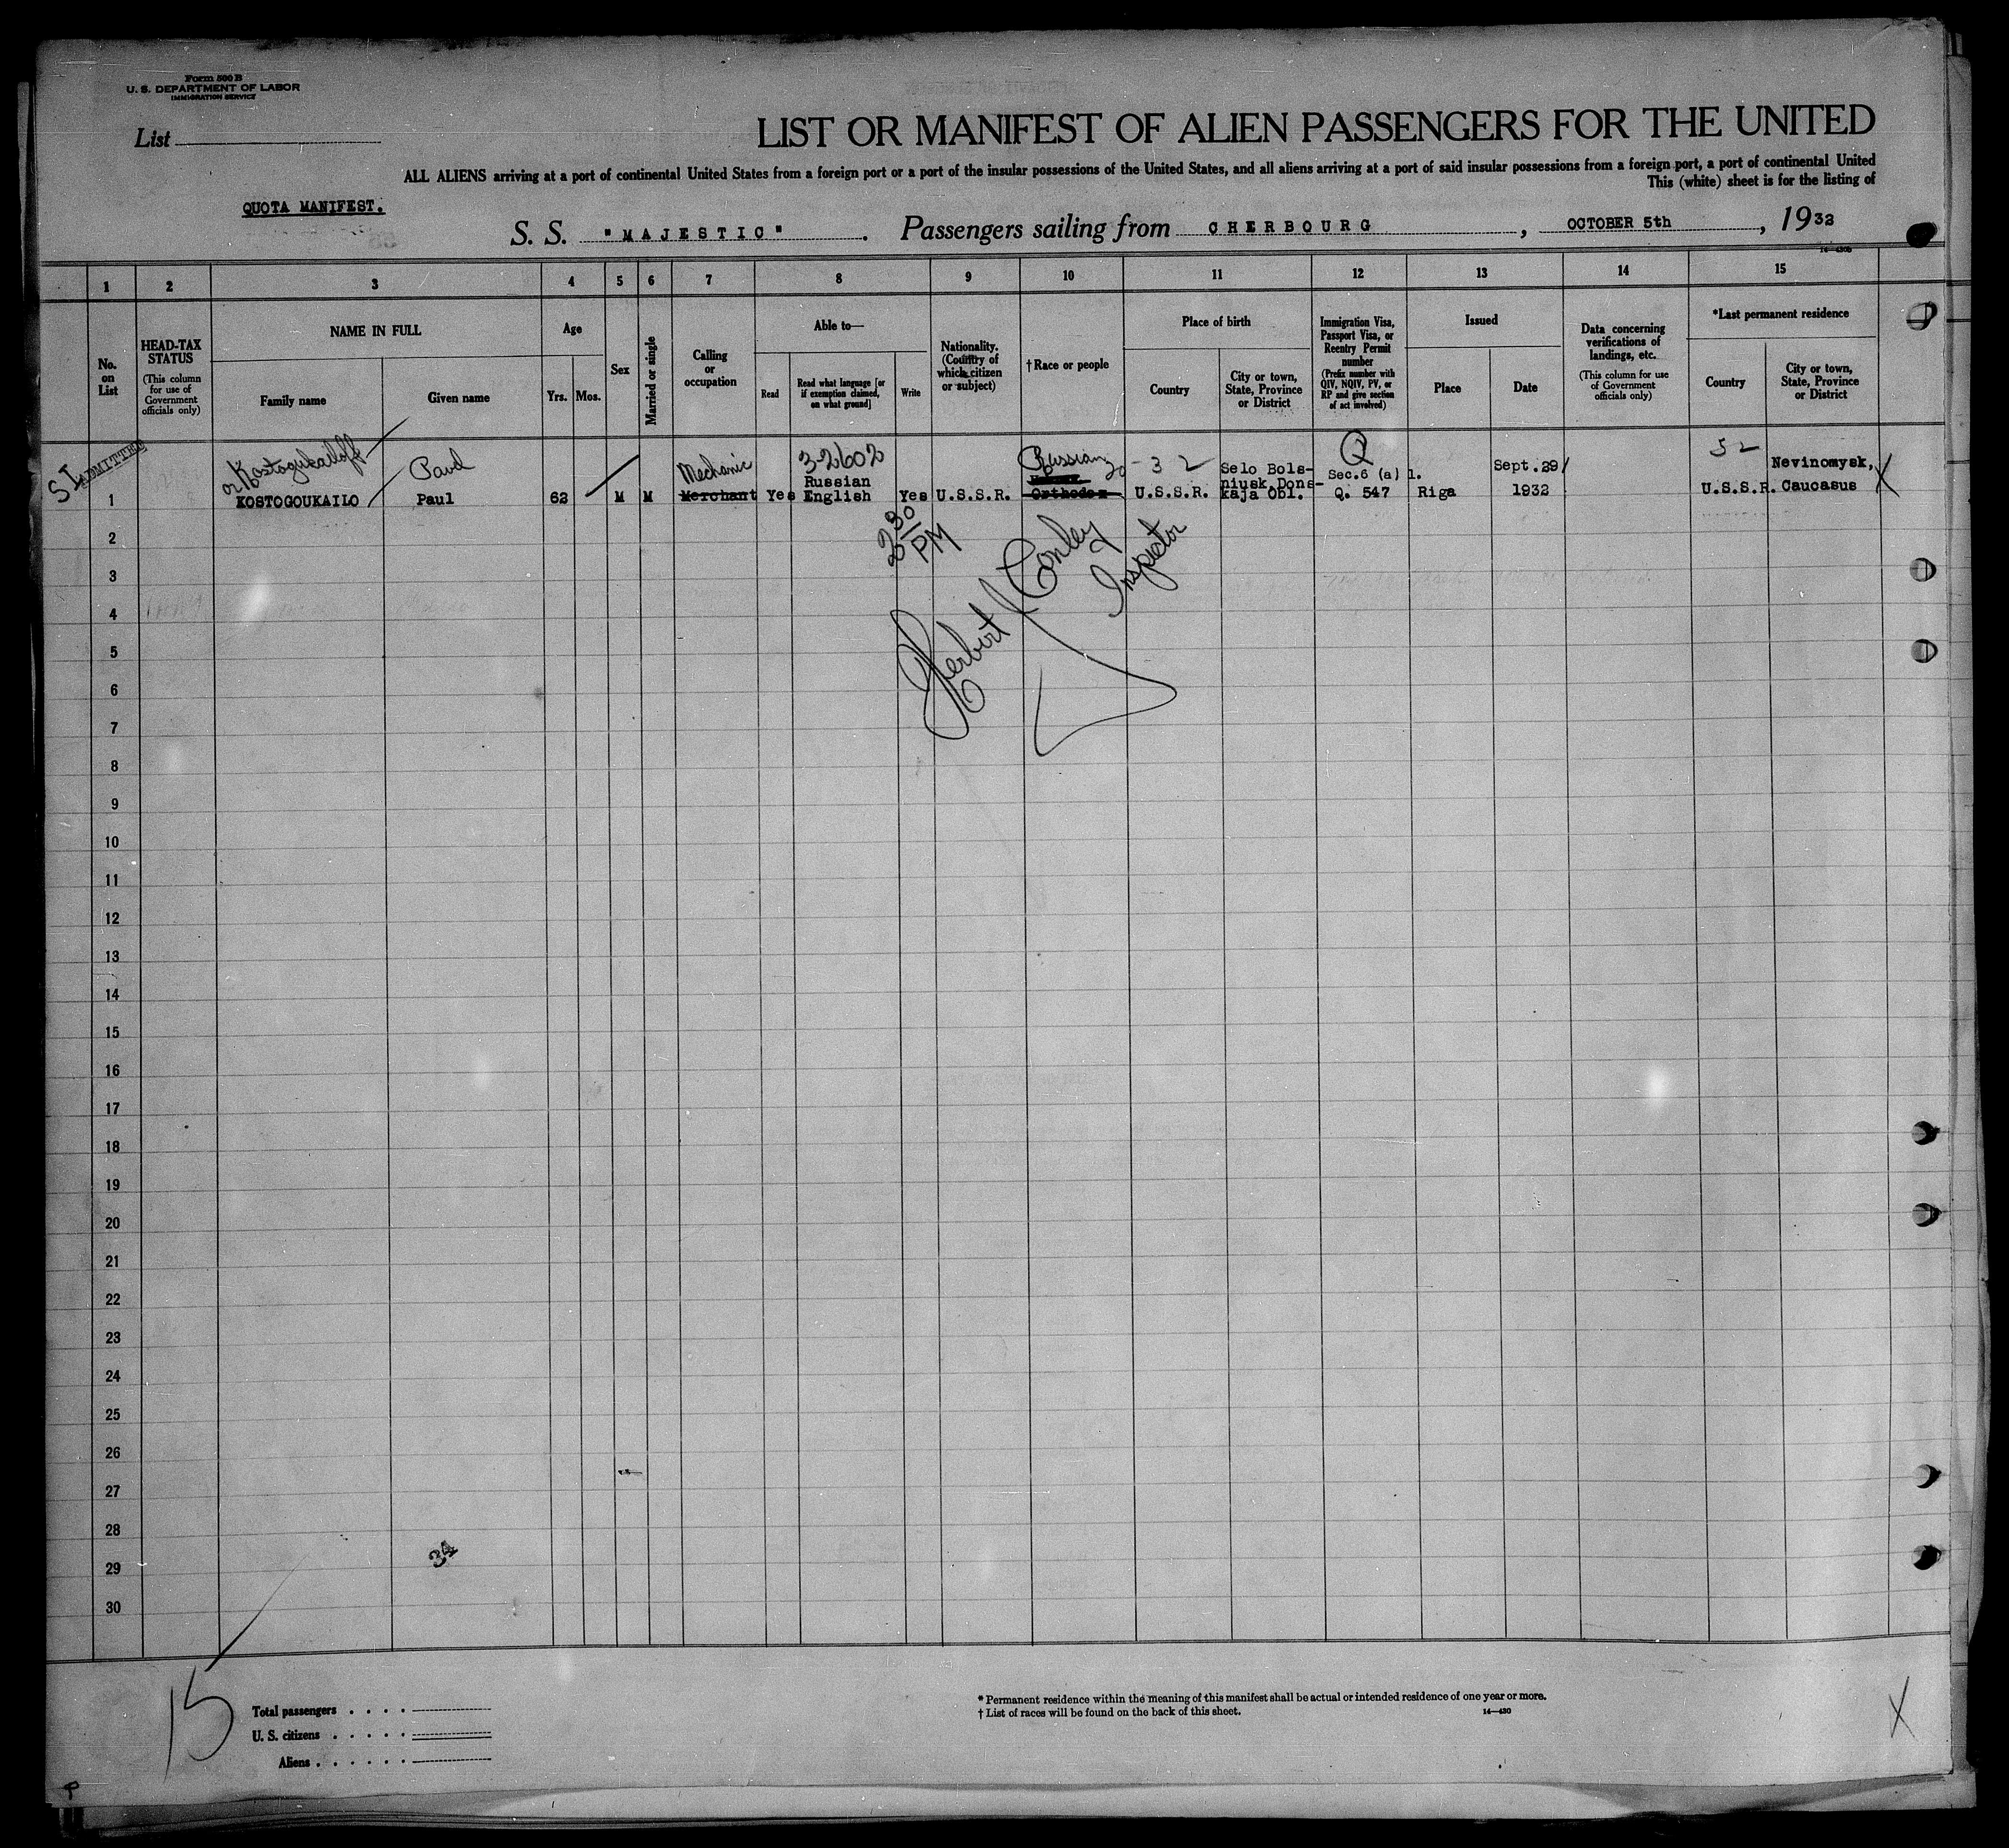 Form 500 B
U. S. DEPARTMENT OF LABOR
IMMIGRATION SERVICE
List
LIST OR MANIFEST OF ALIEN PASSENGERS FOR THE UNITED
ALL ALIENS arriving at a port of continental United States from a foreign port or a port of the insular possessions of the United States, and all aliens arriving at a port of said insular possessions from a foreign port, a port of continental United
This (white) sheet is for the listing of
QUOTA MANIFEST.
S. S. "MAJESTIC". Passengers sailing from CHERBOURG, OCTOBER 5th, 1932
1 2 3 4 5 6 7 8 9 10 11 12 13 14 15
No. on List
HEAD-TAX STATUS
(This column for use of Government officials only)
NAME IN FULL
Family name
Given name
Age
Yrs. Mos.
Sex
Married or single
Calling or occupation
Able to—
Read
Read what language [or if exemption claimed, on what ground]
Write
Nationality. (Country of which citizen or subject)
†Race or people
Place of birth
Country
City or town, State, Province or District
Immigration Visa, Passport Visa, or Reentry Permit number
(Prefix number with QIV, NQIV, PV, or RP and give section of act involved)
Issued
Place
Date
Data concerning verifications of landings, etc.
(This column for use of Government officials only)
*Last permanent residence
Country
City or town, State, Province or District
SI ADMITTED
or Kostogukailoff Paul
Mechanic
32602
Russian
- 3 2
Q
52
1 KOSTOGOUKAILO Paul 62 M M Merchant Yes Russian English Yes U.S.S.R. Orthodox U.S.S.R. Selo Bols-niusk Dons-kaja Obl. Sec.6 (a) 1. Q. 547 Riga Sept.29 1932 U.S.S.R. Nevinomysk, Caucasus X
2
3
4
5
6
7
8
9
10
11
12
13
14
15
16
17
18
19
20
21
22
23
24
25
26
27
28
29
30
2 30 PM
Herbert Conley
Inspector
34
15
Total passengers
U. S. citizens
Aliens
* Permanent residence within the meaning of this manifest shall be actual or intended residence of one year or more.
† List of races will be found on the back of this sheet.
14—430
X